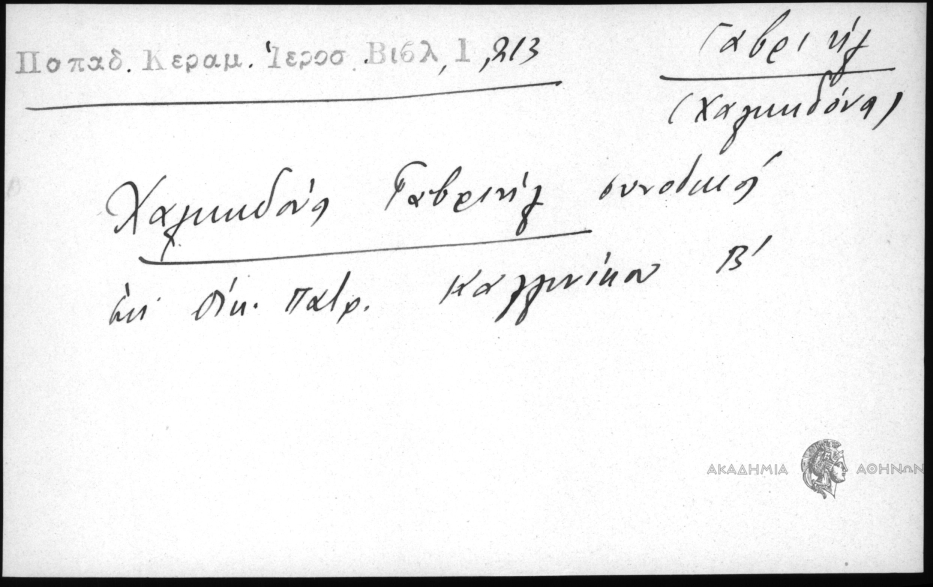 Παπαδ. Κεραμ. Ἱεροσ. Βιβλ, 1, 213
Γαβριήλ
(Χαλκηδόνα)
Χαλκηδόνος Γαβριήλ συνοδικός
ἐπί Οἰκ. Πατρ. Καλλινίκου Β΄
ΑΚΑΔΗΜΙΑ ΑΘΗΝΩΝ